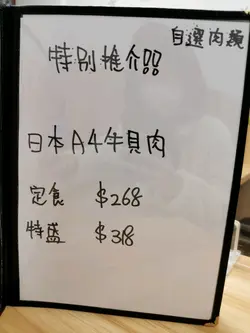 自選肉類
特別推介!!
日本A4牛貝肉
定食 $268
特盛 $318